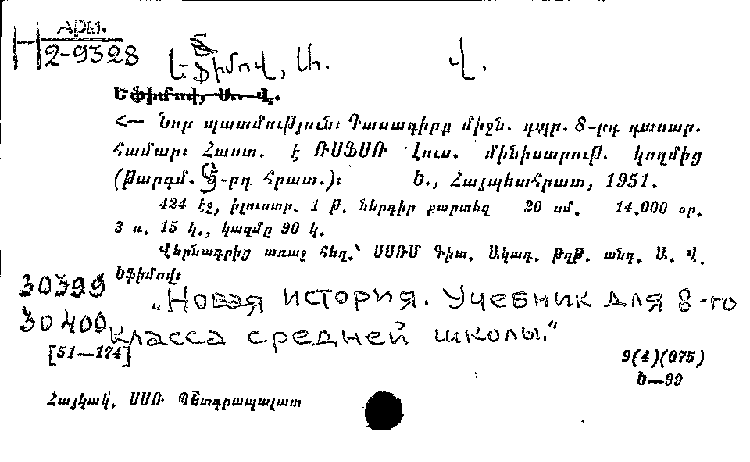 Арм.
Н 2-9328
Եֆիմով, Ա. Վ.
Եֆիմով, Ա. Վ.
Հ— Նոր պատմություն: Դասագիրք միջն. դպր. 8-րդ դասար.
Համար: Հաստ. է ՌՍՖՍՌ Լուս. մինիստրութ. կողմից
(Թարգմ. 9-րդ հրատ.): Ե., Հայպետհրատ, 1951.
424 էջ, իլուստր. 1 թ. ներդիր քարտեզ 20 սմ. 14.000 օր.
3 ռ. 15 կ., կազմը 90 կ.
Վերնագրից առաջ հեղ.՝ ՍՍՌՄ Գիտ. Ակադ. թղթ. անդ. Ա. Վ.
Եֆիմով:
30399 „Новая история. Учебник для 8-го
30400 класса средней школы.“
[51—174] 9(4)(075)
Ե—99
Հայկակ. ՍՍՌ Պետգրապալատ